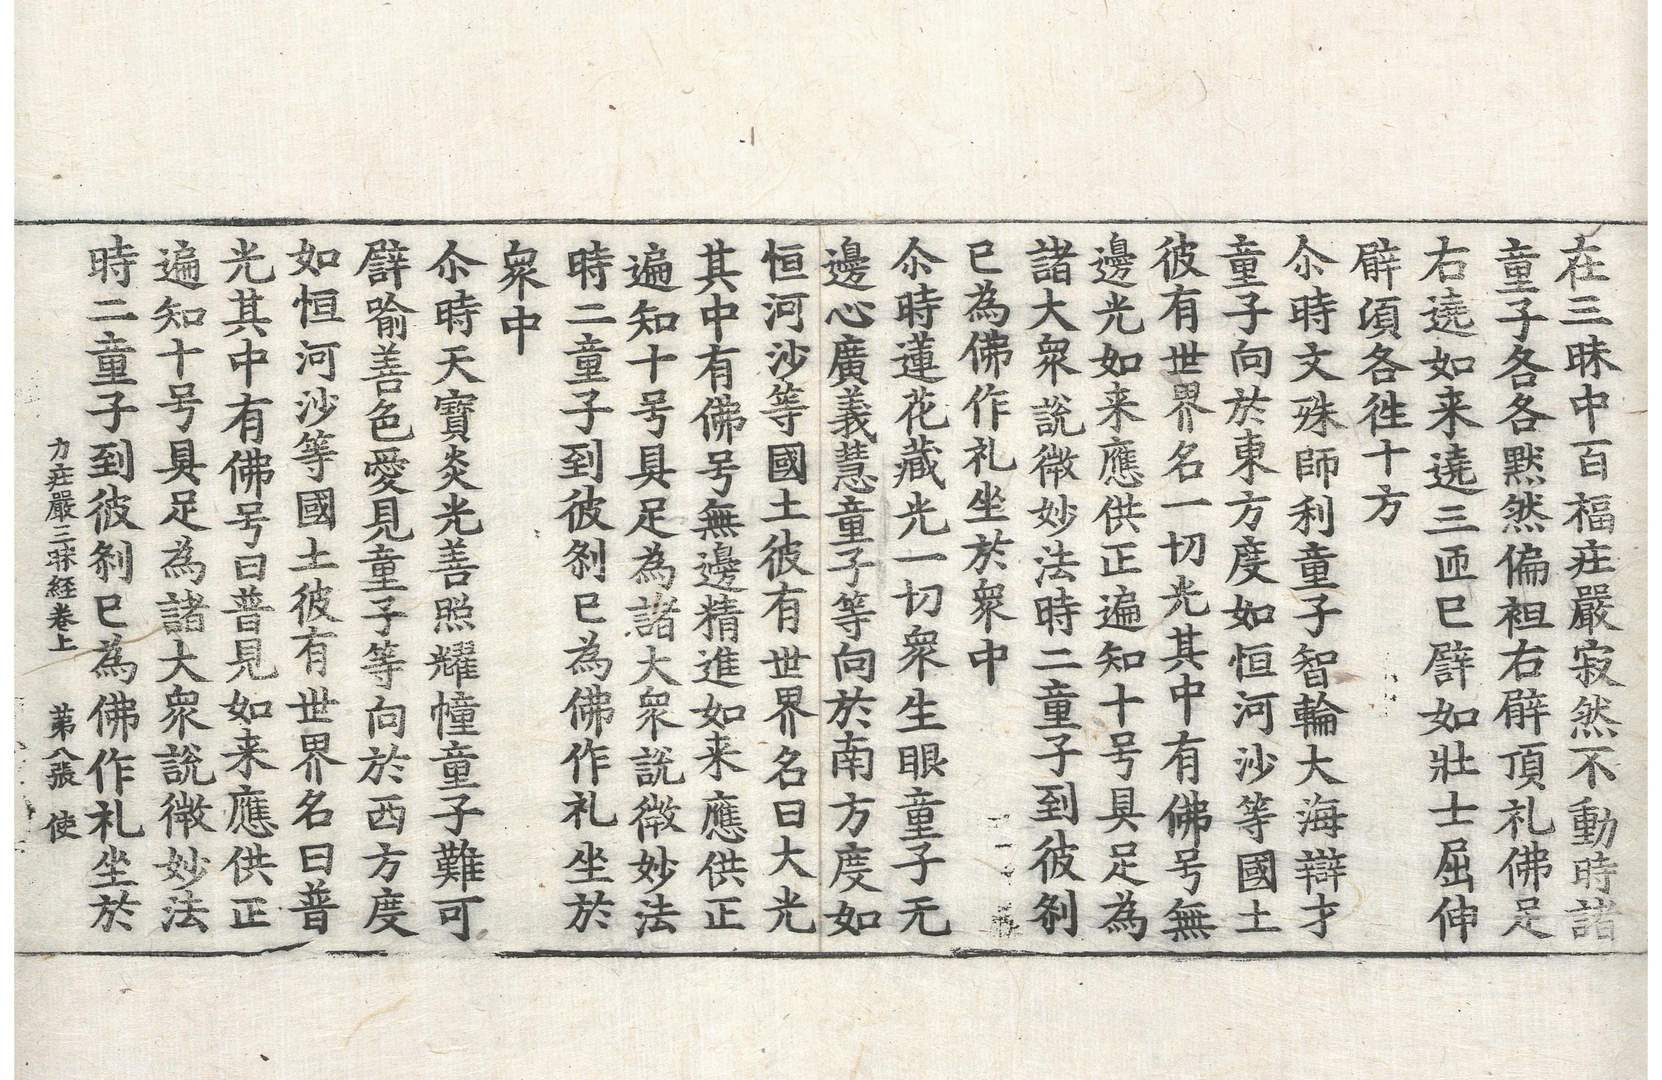 在三昧中百福庄嚴寂然不動時諸
童子各各默然偏袒右臂頂礼佛足
右遶如来遶三匝已譬如壯士屈伸
臂頃各徃十方
尒時文殊師利童子智輪大海辯才
童子向於東方度如恒河沙等國土
彼有世界名一切光其中有佛号無
邊光如来應供正遍知十号具足為
諸大衆說微妙法時二童子到彼刹
已為佛作礼坐於衆中
尒時蓮花藏光一切衆生眼童子无
邊心廣義慧童子等向於南方度如
恒河沙等國土彼有世界名曰大光
其中有佛号無邊精進如来應供正
遍知十号具足為諸大衆說微妙法
時二童子到彼刹已為佛作礼坐於
衆中
尒時天寶炎光善照耀幢童子難可
譬喻善色愛見童子等向於西方度
如恒河沙等國土彼有世界名曰普
光其中有佛号曰普見如来應供正
遍知十号具足為諸大衆說微妙法
時二童子到彼刹已為佛作礼坐於
力庄嚴三昧経卷上 第八張 使